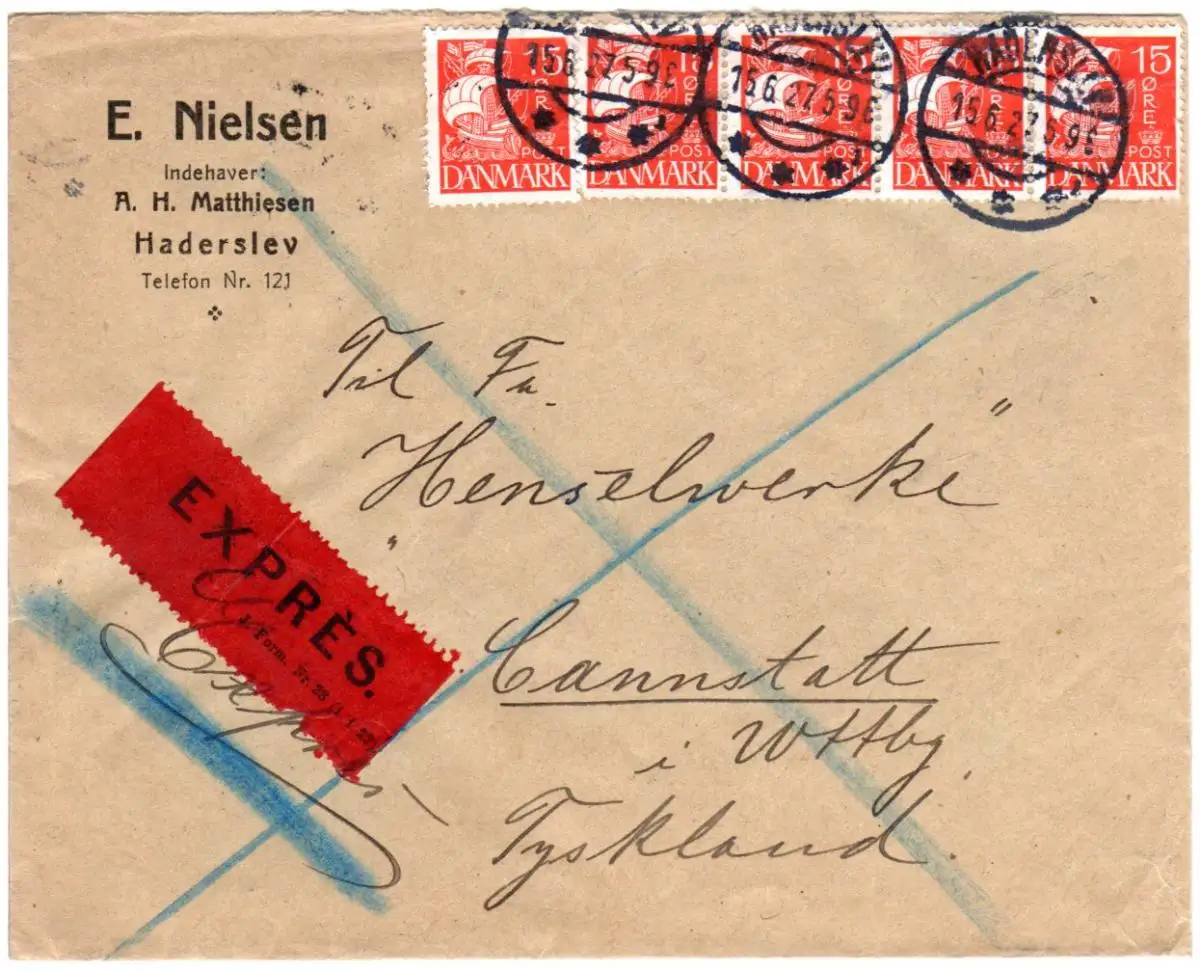 E. Nielsen
Indehaver:
A. H. Matthiesen
Haderslev
Telefon Nr. 121
15 ØRE POST DANMARK
15 ØRE POST DANMARK
15 ØRE POST DANMARK
15 ØRE POST DANMARK
15 ØRE POST DANMARK
15.6.27.5-9E
HADERSLEV 15.6.27.5-9E
HADERSLEV 15.6.27.5-9E
Til Fa.
„Henselwerke"
Cannstatt
i Wttbg.
Tyskland.
EXPRÈS.
J. Form. Nr. 28